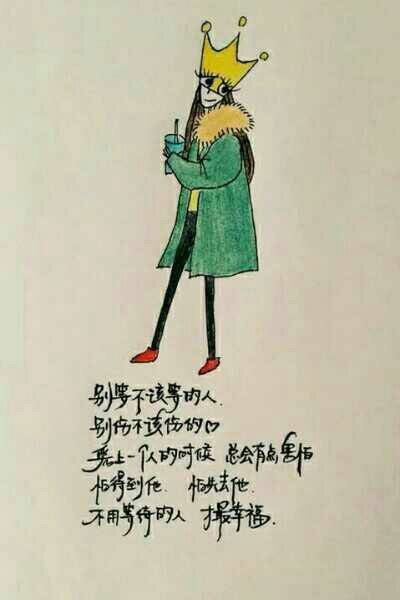 别等不该等的人.
别伤不该伤的♡
爱上一个人的时候 总会有点害怕
怕得到他. 怕失去他.
不用等待的人 才最幸福.